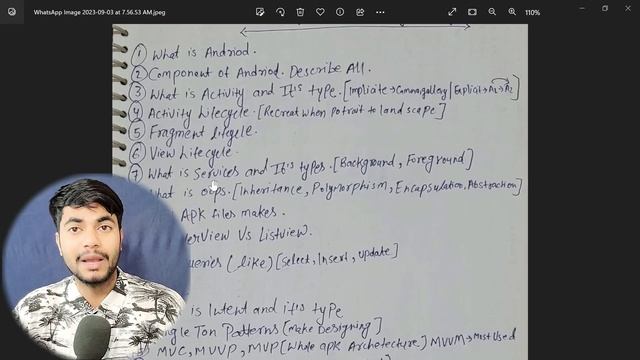 WhatsApp Image 2023-09-03 at 7.56.53 AM.jpeg
110%
① What is Andriod.
② Component of Andriod. Describe All.
③ What is Activity and It's type. [Implicite → Camera,gallery | Explicit → A1 → A2]
④ Activity Lifecycle. [Recreat when Potrait to landscape]
⑤ Fragment lifecycle.
⑥ View Lifecycle.
⑦ What is Services and It's types. [Background, Foreground]
What is Oops. [Inheritance, Polymorphism, Encapsulation, Abstraction]
APK files makes.
View Vs Listview.
(like) [Select, Insert, Update]
is Intent and it's type
Ton Patterns [Make Designing]
MVC, MVVP, MVP [Whole apk Archetecture] MVVM → Most Used